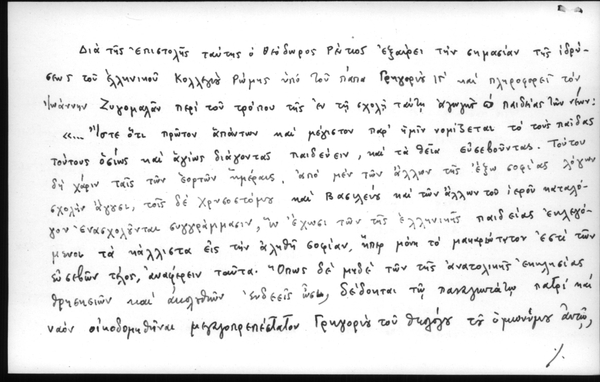 Διὰ τῆς ἐπιστολῆς ταύτης ὁ Θεόδωρος Ρέντιος ἐξαίρει τὴν σημασίαν τῆς ἱδρύ-
σεως τοῦ ἑλληνικοῦ Κολλεγίου Ρώμης ὑπὸ τοῦ πάπα Γρηγορίου ΙΓ' καὶ πληροφορεῖ τὸν
Ἰωάννην Ζυγομαλᾶν περὶ τοῦ τρόπου τῆς ἐν τῇ σχολῇ ταύτῃ ἀγωγῆς παιδείας τῶν νέων:
«... Ἴστε ὅτι πρῶτον ἁπάντων καὶ μέγιστον παρ' ἡμῖν νομίζεται τὸ τοὺς παῖδας
τούτους ὁσίως καὶ ἁγίως διάγοντας παιδεύειν, καὶ τὰ θεῖα εὐσεβοῦντας. Τούτου
δὴ χάριν ταῖς τῶν ἑορτῶν ἡμέραις, ἀπὸ μὲν τῶν ἄλλων τῆς ἔξω σοφίας λόγων
σχολὴν ἄγουσι, τοῖς δὲ Χρυσοστόμου καὶ Βασιλείου καὶ τῶν ἄλλων τοῦ ἱεροῦ καταλό-
γου ἐνασχολοῦνται συγγράμμασιν, ἵν' ἔχωσι τῶν τῆς ἑλληνικῆς παιδείας ἐκλεγό-
μενοι τὰ κάλλιστα εἰς τὴν ἀληθῆ σοφίαν, ἥπερ μόνη τὸ μακαριώτατον ἐστὶ τῶν
εὐσεβῶν τέλος, ἀναφέρειν ταῦτα. Ὅπως δὲ μηδὲ τῶν τῆς ἀνατολικῆς ἐκκλησίας
θρησκειῶν καὶ ἀκολουθιῶν ἐνδεεῖς ὦσι, δέδοκται τῷ παναγιωτάτῳ πατρὶ καὶ
ναὸν οἰκοδομηθῆναι μεγαλοπρεπέστατον Γρηγορίου τοῦ θεολόγου τοῦ ὁμωνύμου αὐτῷ,
./.